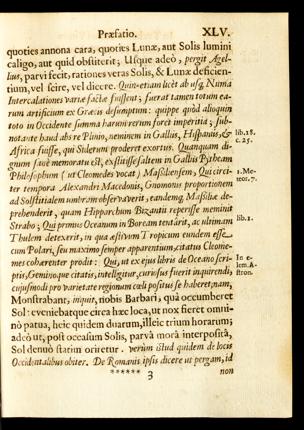 Præfatio. XLV.
quoties annona cara, quoties Lunæ, aut Solis lumini
caligo, aut quid obstiterit; Usque adeò, pergit Agel-
lius, parvi fecit, rationes veras Solis, & Lunæ deficien-
tium, vel scire, vel dicere. Quin-etiam licèt ab usq; Numa
Intercalationes variæ factæ fuissent; fuerat tamen totum ea-
rum artificium ex Græcis desumptum: quippe quòd alioquin
toto in Occidente summa harum rerum foret imperitia; sub-
notante haud abs re Plinio, neminem in Gallis, Hispanis, &
Africa fuisse, qui Siderum proderet exortus. Quanquam di-
gnum sanè memoratu est, exstitisse saltem in Gallis Pytheam
Philosophum (ut Cleomedes vocat) Massiliensem, Qui circi-
ter tempora Alexandri Macedonis, Gnomonis proportionem
ad Solstitialem umbram observaverit, eandemq; Massiliæ de-
prehenderit, quam Hipparchum Bizantii reperisse meminit
Strabo; Qui primus Oceanum in Boream tentârit, ac ultimam
Thulem detexerit, in qua æstivum Tropicum eundem esse
cum Polari, seu maximo semper apparentium, citatus Cleome-
mes cohærenter prodit: Qui, ut ex ejus libris de Oceano scri-
ptis, Geminoque citatis, intelligitur, curiosus fuerit inquirendi,
cujusmodi pro varietate regionum cœli positus se haberet, nam,
Monstrabant, inquit, nobis Barbari, quà occumberet
Sol: eveniebatque circa hæc loca, ut nox fieret omni-
nò patua, heic quidem duarum, illeic trium horarum;
adeò ut, post occasum Solis, parvâ morâ interpositâ,
Sol denuò statim oriretur. verùm istud quidem de locis
Occidentalibus obiter. De Romanis ipsis dicere ut pergam, id
****** 3 non
lib. 18.
c. 25.
1. Me-
teor. 7.
lib. 1.
In e-
lem. A-
stron.